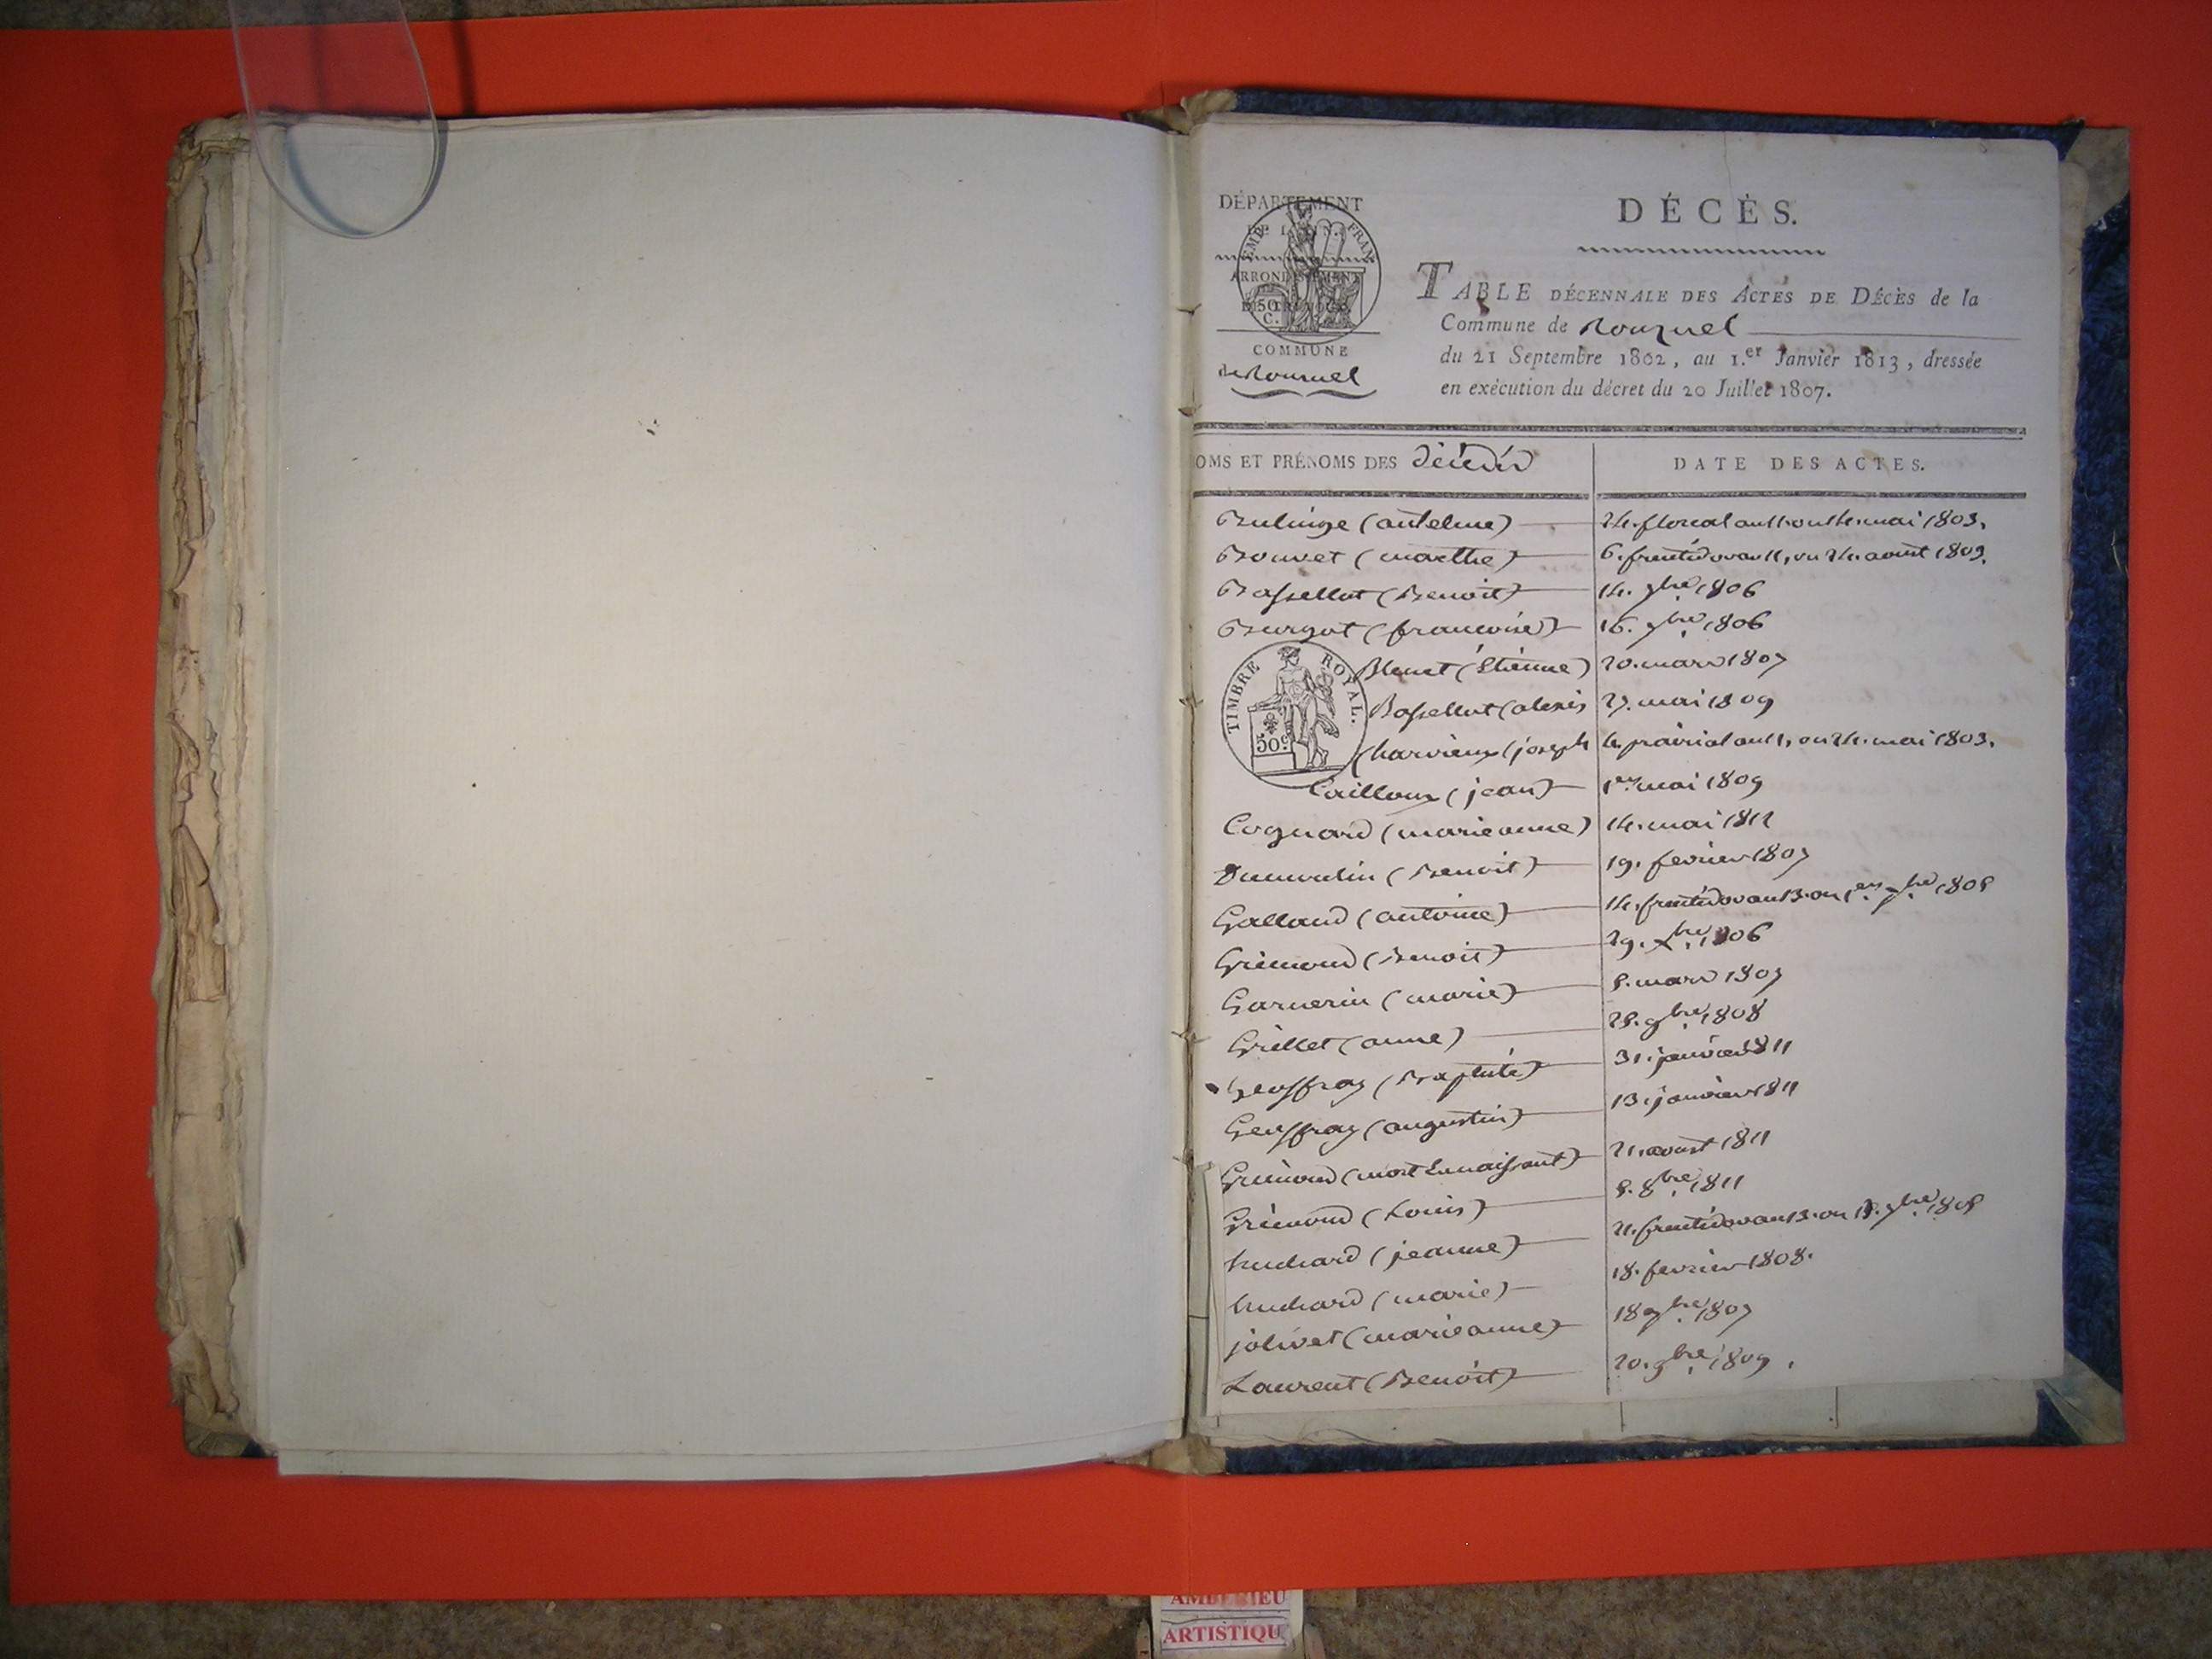 DÉPARTEMENT
DE L'AIN.
ARRONDISSEMENT
DE TRÉVOUX.
50
C.
COMMUNE
DÉCÈS.
TABLE DÉCENNALE DES ACTES DE DÉCÈS de la
Commune de
du 21 Septembre 1802, au 1.er Janvier 1813, dressée
en exécution du décret du 20 Juillet 1807.
OMS ET PRÉNOMS DES décédés
DATE DES ACTES.
(antelme) 24. floreal an 11. ou 14. mai 1803.
Bouvet (marthe) 6. fructidor an 11, ou 24. aout 1803.
Bassellut (Benoit) 14. 1806
Burgot (francoise) 16. 1806
TIMBRE ROYAL.
50c
Blenet (Etienne) 20. mars 1807
Bassellut (alexis 27. mai 1809
Charvieux (joseph 4. prairial an 11, ou 24. mai 1803.
Cailloux (jean) 1er mai 1809
Cognard (marie anne) 14. mai 1812
Dumoulin (Benoit) 19. fevrier 1807
Galland (antoine) 14. fructidor an 13. ou 1er 7bre 1805
Grimond (Benoit) 29. xbre 1806
Garnerin (marie) 5. mars 1807
Grillet (anne) 25. 9bre 1808
Geoffray (Baptiste) 31. janvier 1811
Geoffray (augustin) 13. janvier 1811
Grimond (mort en naissant) 21. aoust 1811
Grimond (Louis) 5. 8bre 1811
huchard (jeanne) 21. fructidor an 13. ou 7bre 1805
huchard (marie) 18. fevrier 1808.
jolivet (marie anne) 18 1807
Laurent (Benoit) 20. 9bre 1809.
AMBERIEU
ARTISTIQU